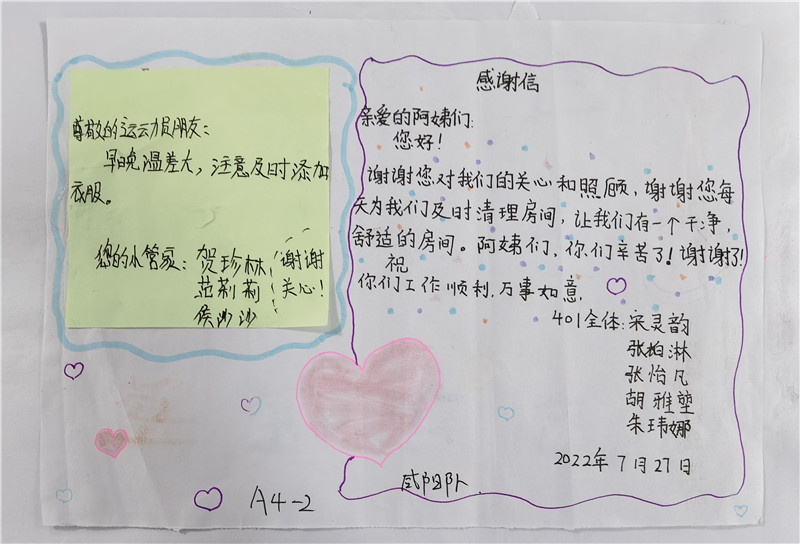 尊敬的运动员朋友：
早晚温差大，注意及时添加
衣服。
您的小管家：贺珍林
范莉莉
侯沙沙
谢谢
关心！
感谢信
亲爱的阿姨们：
您好！
谢谢您对我们的关心和照顾，谢谢您每
天为我们及时清理房间，让我们有一个干净，
舒适的房间。阿姨们，你们辛苦了！谢谢了！
祝
你们工作顺利，万事如意。
401全体：宋灵韵
张柏淋
张怡凡
胡雅堃
朱玮娜
2022年7月27日
咸阳队
A4-2